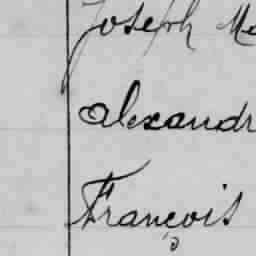 Joseph Me
Alexandr
François